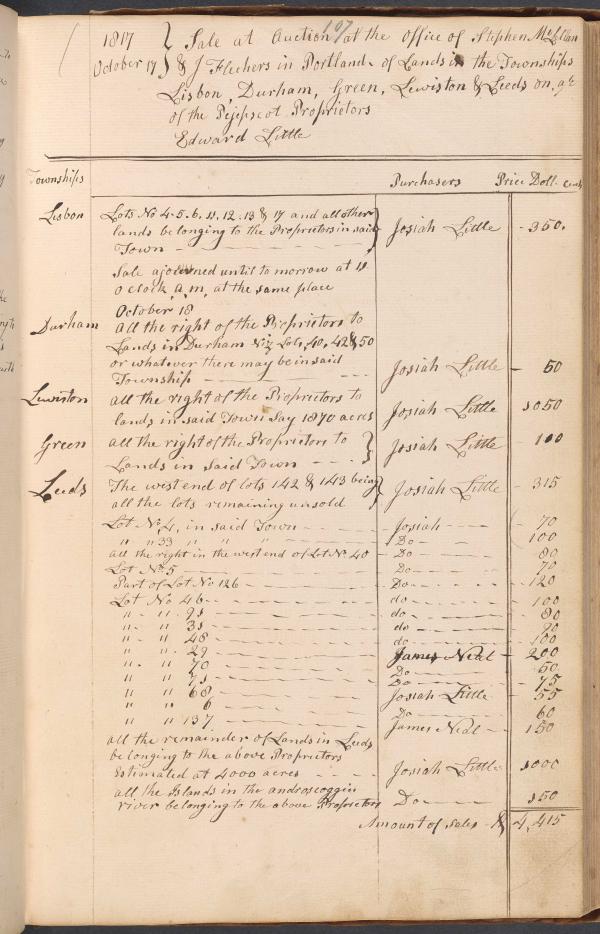 107
1817 } Sale at Auction at the office of Stephen McLellan
October 17 } & J Flechers in Portland of Lands in the Townships
Lisbon, Durham, Green, Lewiston & Leeds on a/c
of the Pejepscot Proprietors
Edward Little
Townships Purchasers Price Doll. Cents
Lisbon Lots No 4. 5. 6. 11. 12. 13 & 17 and all other
lands belonging to the Proprietors in said } Josiah Little - 350.
Town
Sale ajorned until to morrow at 11
o clock, a, m, at the same place
October 18
Durham all the right of the Proprietors to
Lands in Durham Viz Lots, 40, 42 & 50
or whatever there may be in said
Township Josiah Little - 50
Lewiston all the right of the Proprietors to
lands in said Town Say 1870 acres Josiah Little 1050
Green all the right of the Proprietors to }
Lands in Said Town } Josiah Little - 100
Leeds The west end of lots 142 & 143 being }
all the lots remaining unsold Josiah Little - 315
Lot No, 4, in said Town Josiah 70
" " 33 " " " Do 100
all the right in the west end of Lot No 40 Do 80
Lot No 5 Do 70
Part of Lot No 126 Do 120
Lot No 46 do 100
" " 91 do 80
" " 31 do 90
" " 48 do 100
" " 29 James Neal 200
" " 70 Do 50
" " 71 Do 75
" " 68 Josiah Little 55
" " 6 Do 60
" " 137 James Neal 150
all the remainder of Lands in Leeds
belonging to the above Proprietors
Estimated at 4000 acres Josiah Little 1000
all the Islands in the androscoggin
river belonging to the above Proprietors Do 150
Amount of sales - $ 4,415